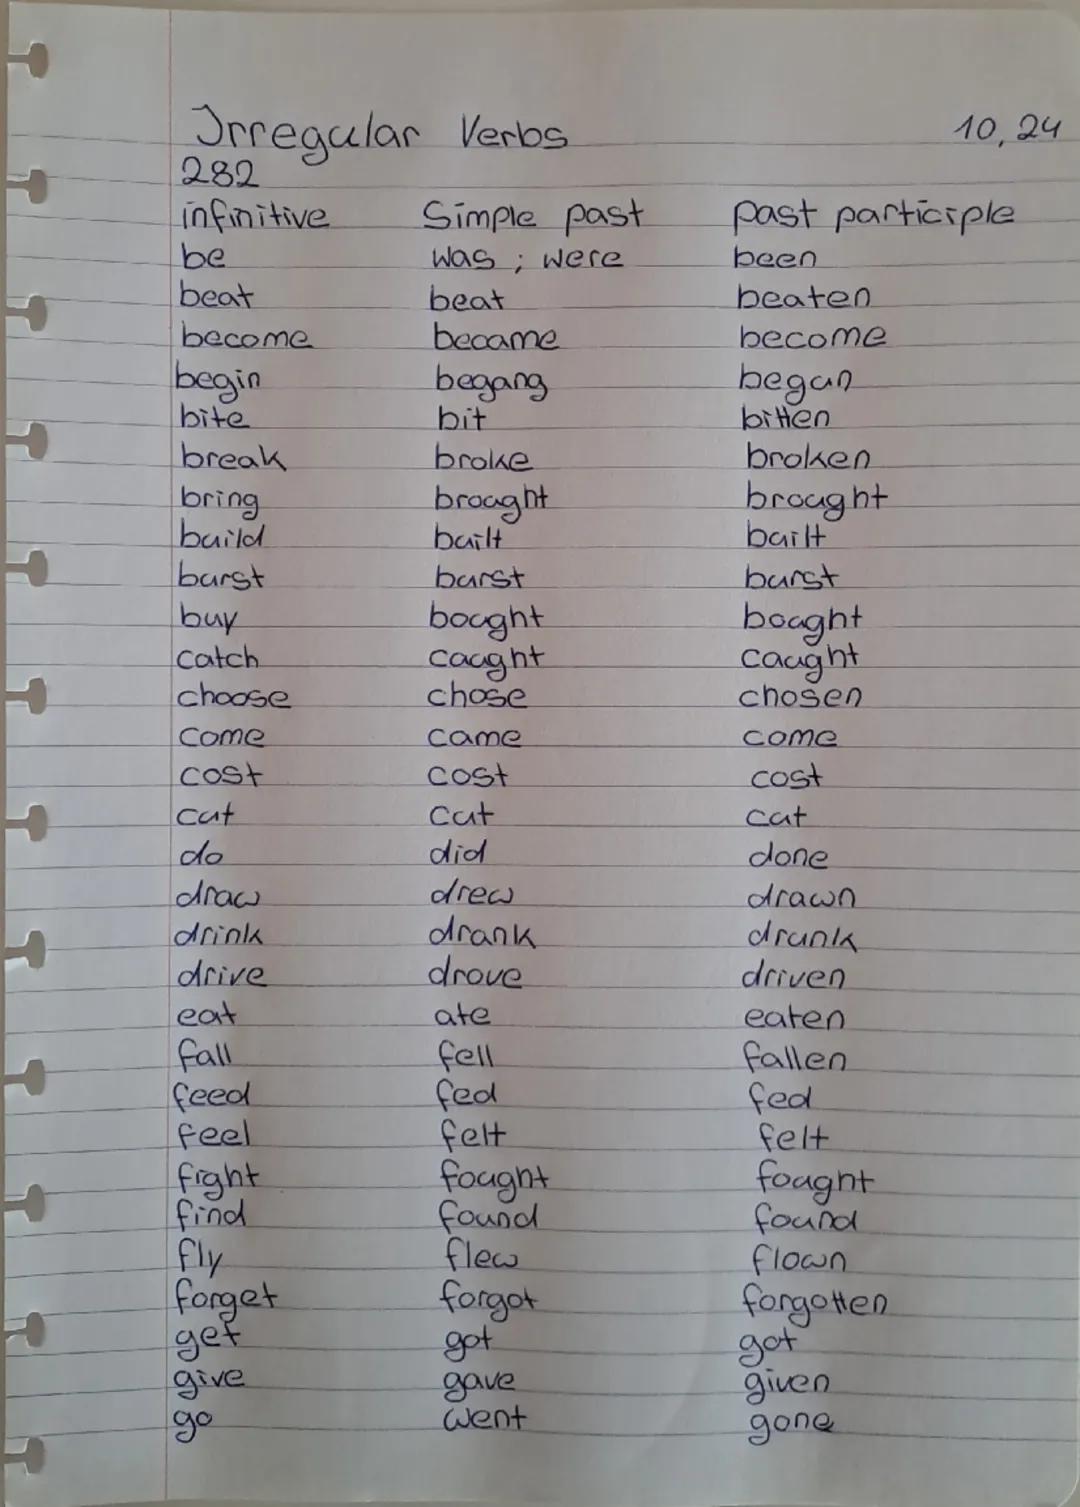 Irregular Verbs 10, 24
282
infinitive Simple past past participle
be was ; were been
beat beat beaten
become became become
begin begang begun
bite bit bitten
break broke broken
bring brought brought
build built built
burst burst burst
buy bought bought
catch caught caught
choose chose chosen
come came come
cost cost cost
cut cut cut
do did done
draw drew drawn
drink drank drunk
drive drove driven
eat ate eaten
fall fell fallen
feed fed fed
feel felt felt
fight fought fought
find found found
fly flew flown
forget forgot forgotten
get got got
give gave given
go went gone